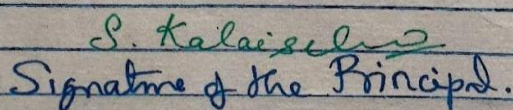 S. Kalaiselvi
Signature of the Principal.